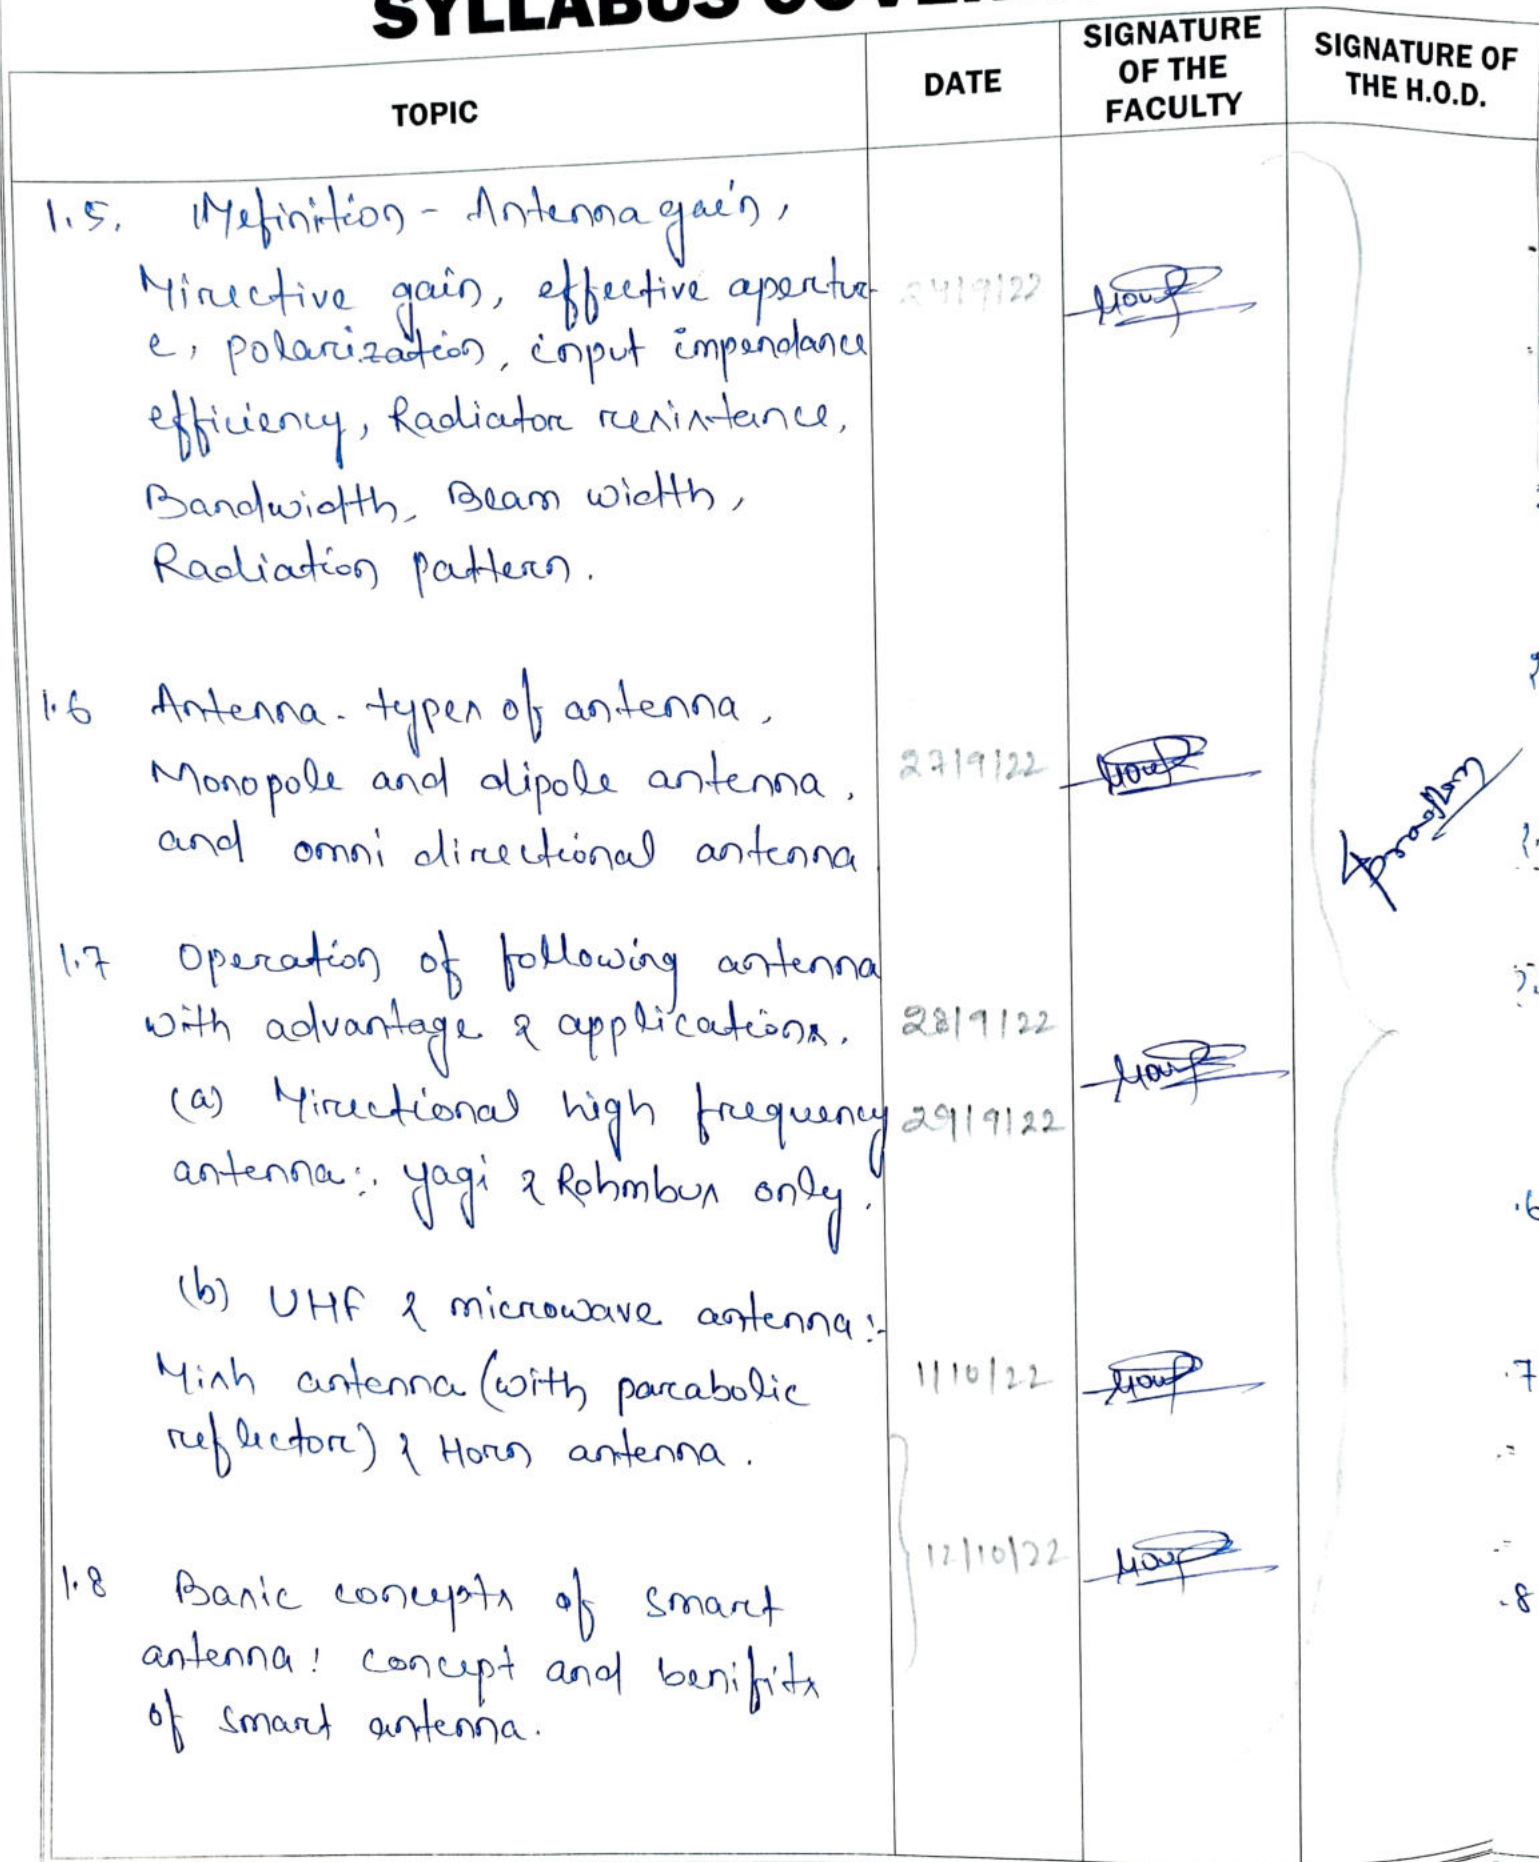 SYLLABUS COVER
TOPIC
DATE
SIGNATURE
OF THE
FACULTY
SIGNATURE OF
THE H.O.D.
1.5. Definition - Antenna gain,
Directive gain, effective apertur-
e, polarization, input impendance
24/9/22
efficiency, Radiator resistance,
Bandwidth, Beam width,
Radiation pattern.
1.6 Antenna - types of antenna,
Monopole and dipole antenna,
27/9/22
and omni directional antenna
1.7 Operation of following antenna
with advantage & applications.
28/9/22
(a) Directional high frequency
29/9/22
antenna:. yagi & Rohmbus only.
(b) UHF & microwave antenna:-
Dish antenna (with parabolic
1/10/22
reflector) & Horn antenna.
12/10/22
1.8 Basic concepts of smart
antenna: concept and benifits
of smart antenna.
.6
.7
.8